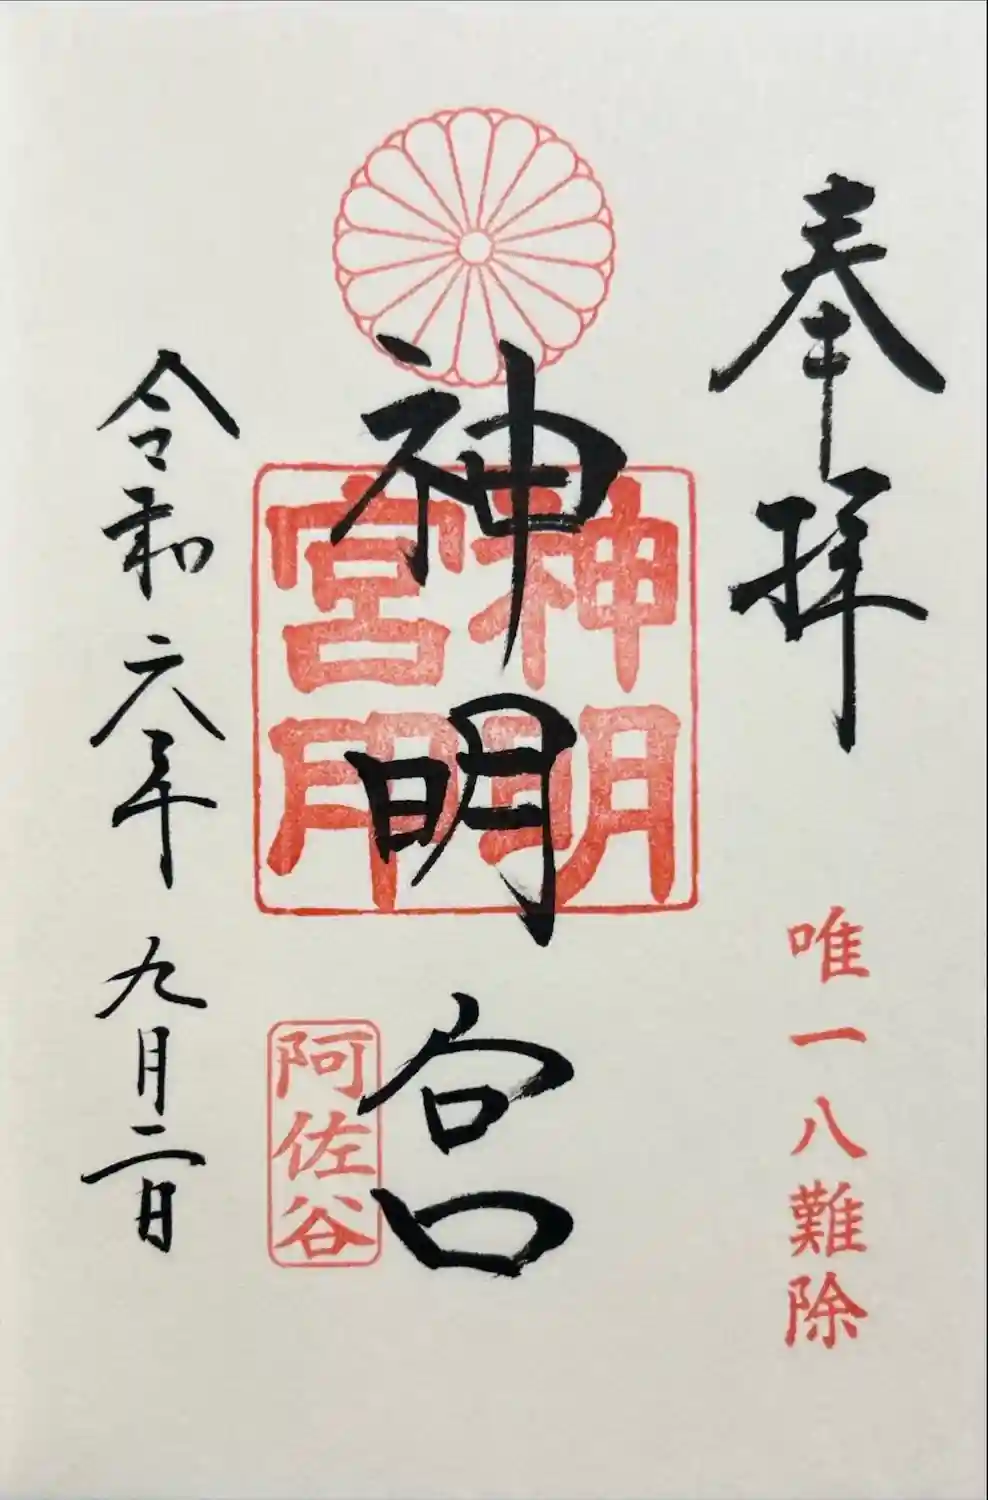 奉拝
唯一八難除
神明宮
神明宮用
阿佐谷
令和六年九月二日